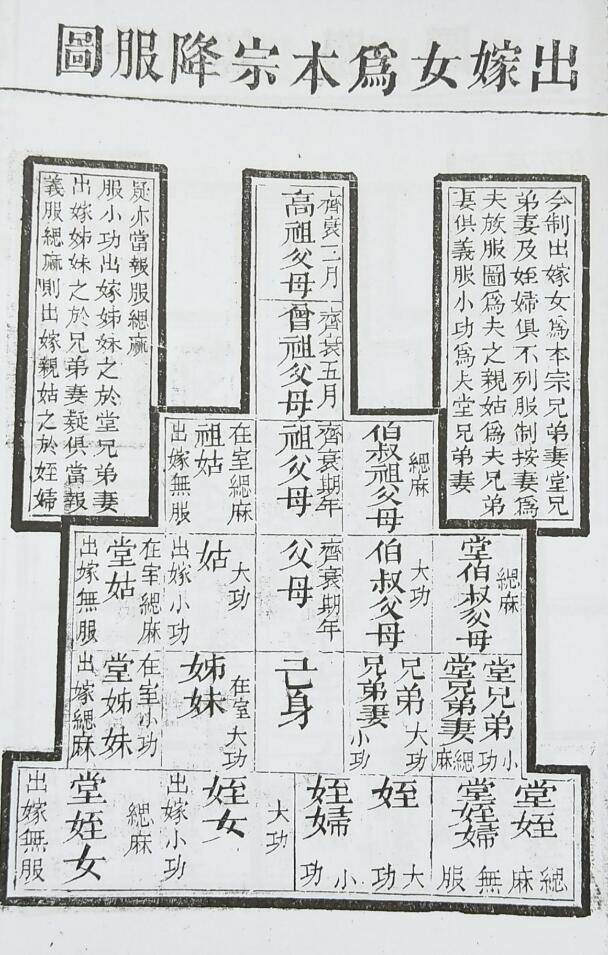 出嫁女爲本宗降服圖
今制出嫁女爲本宗兄弟妻堂兄
弟妻及姪婦俱不列服制按妻爲
夫族服圖爲夫之親姑爲夫兄弟
妻俱義服小功爲夫堂兄弟妻
齊衰三月
高祖父母
齊衰五月
曾祖父母
疑亦當報服緦麻
服小功出嫁姊妹之於堂兄弟妻
出嫁姊妹之於兄弟妻疑俱當報
義服緦麻則出嫁親姑之於姪婦
緦麻
伯叔祖父母
齊衰期年
祖父母
在室緦麻
祖姑
出嫁無服
緦麻
堂伯叔父母
大功
伯叔父母
齊衰期年
父母
大功
姑
出嫁小功
在室緦麻
堂姑
出嫁無服
堂兄弟
小功
堂兄弟妻
緦麻
兄弟
大功
兄弟妻
小功
己身
在室大功
姊妹
在室小功
堂姊妹
出嫁緦麻
堂姪
緦麻
堂姪婦
無服
姪
大功
姪婦
小功
大功
姪女
出嫁小功
緦麻
堂姪女
出嫁無服